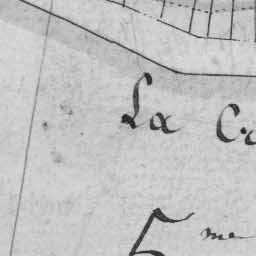 La
5 me